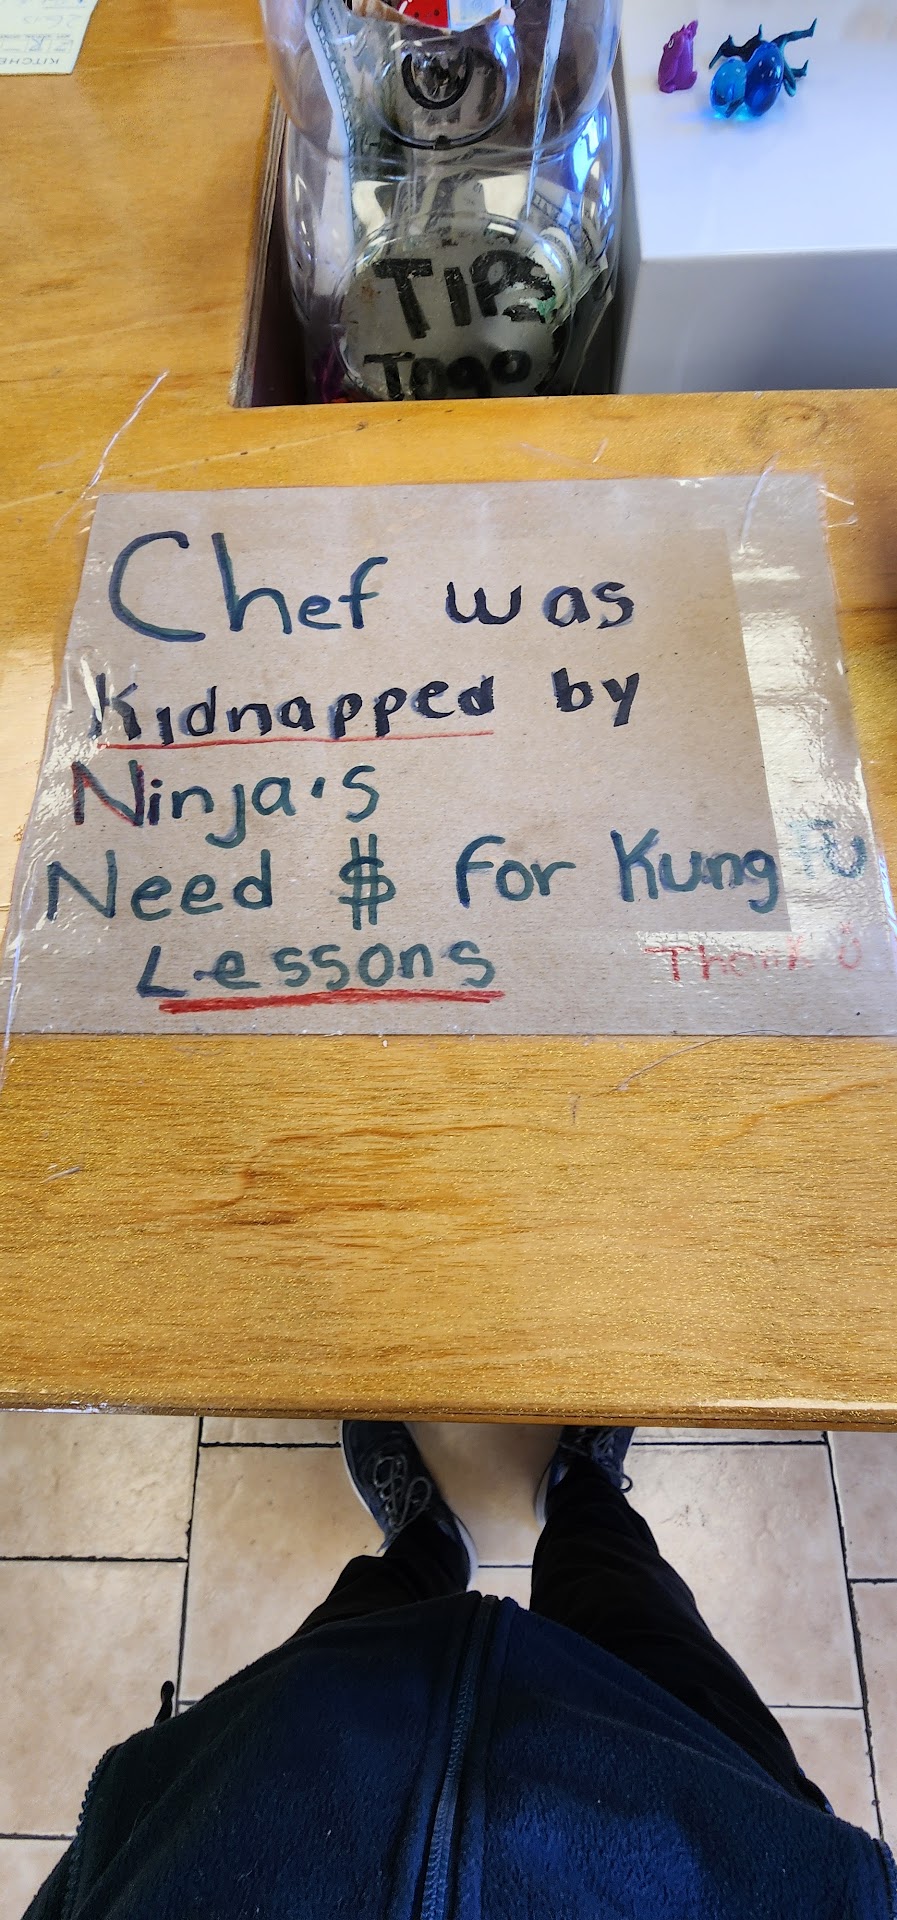 KITCHE
TIPS
TOGO
Chef was
Kidnapped by
Ninja's
Need $ for Kung FU
Lessons
Thank U